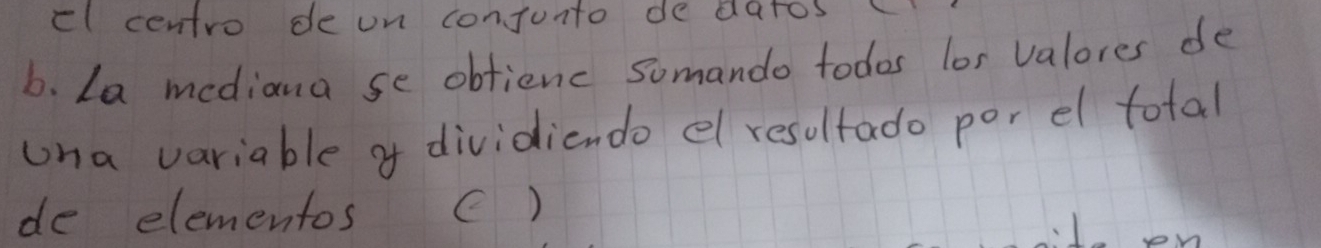 el centro de un conjunto de datos (
b. La mediana se obtiene sumando todos los valores de
una variable y dividiendo el resultado por el total
de elementos ( )
en